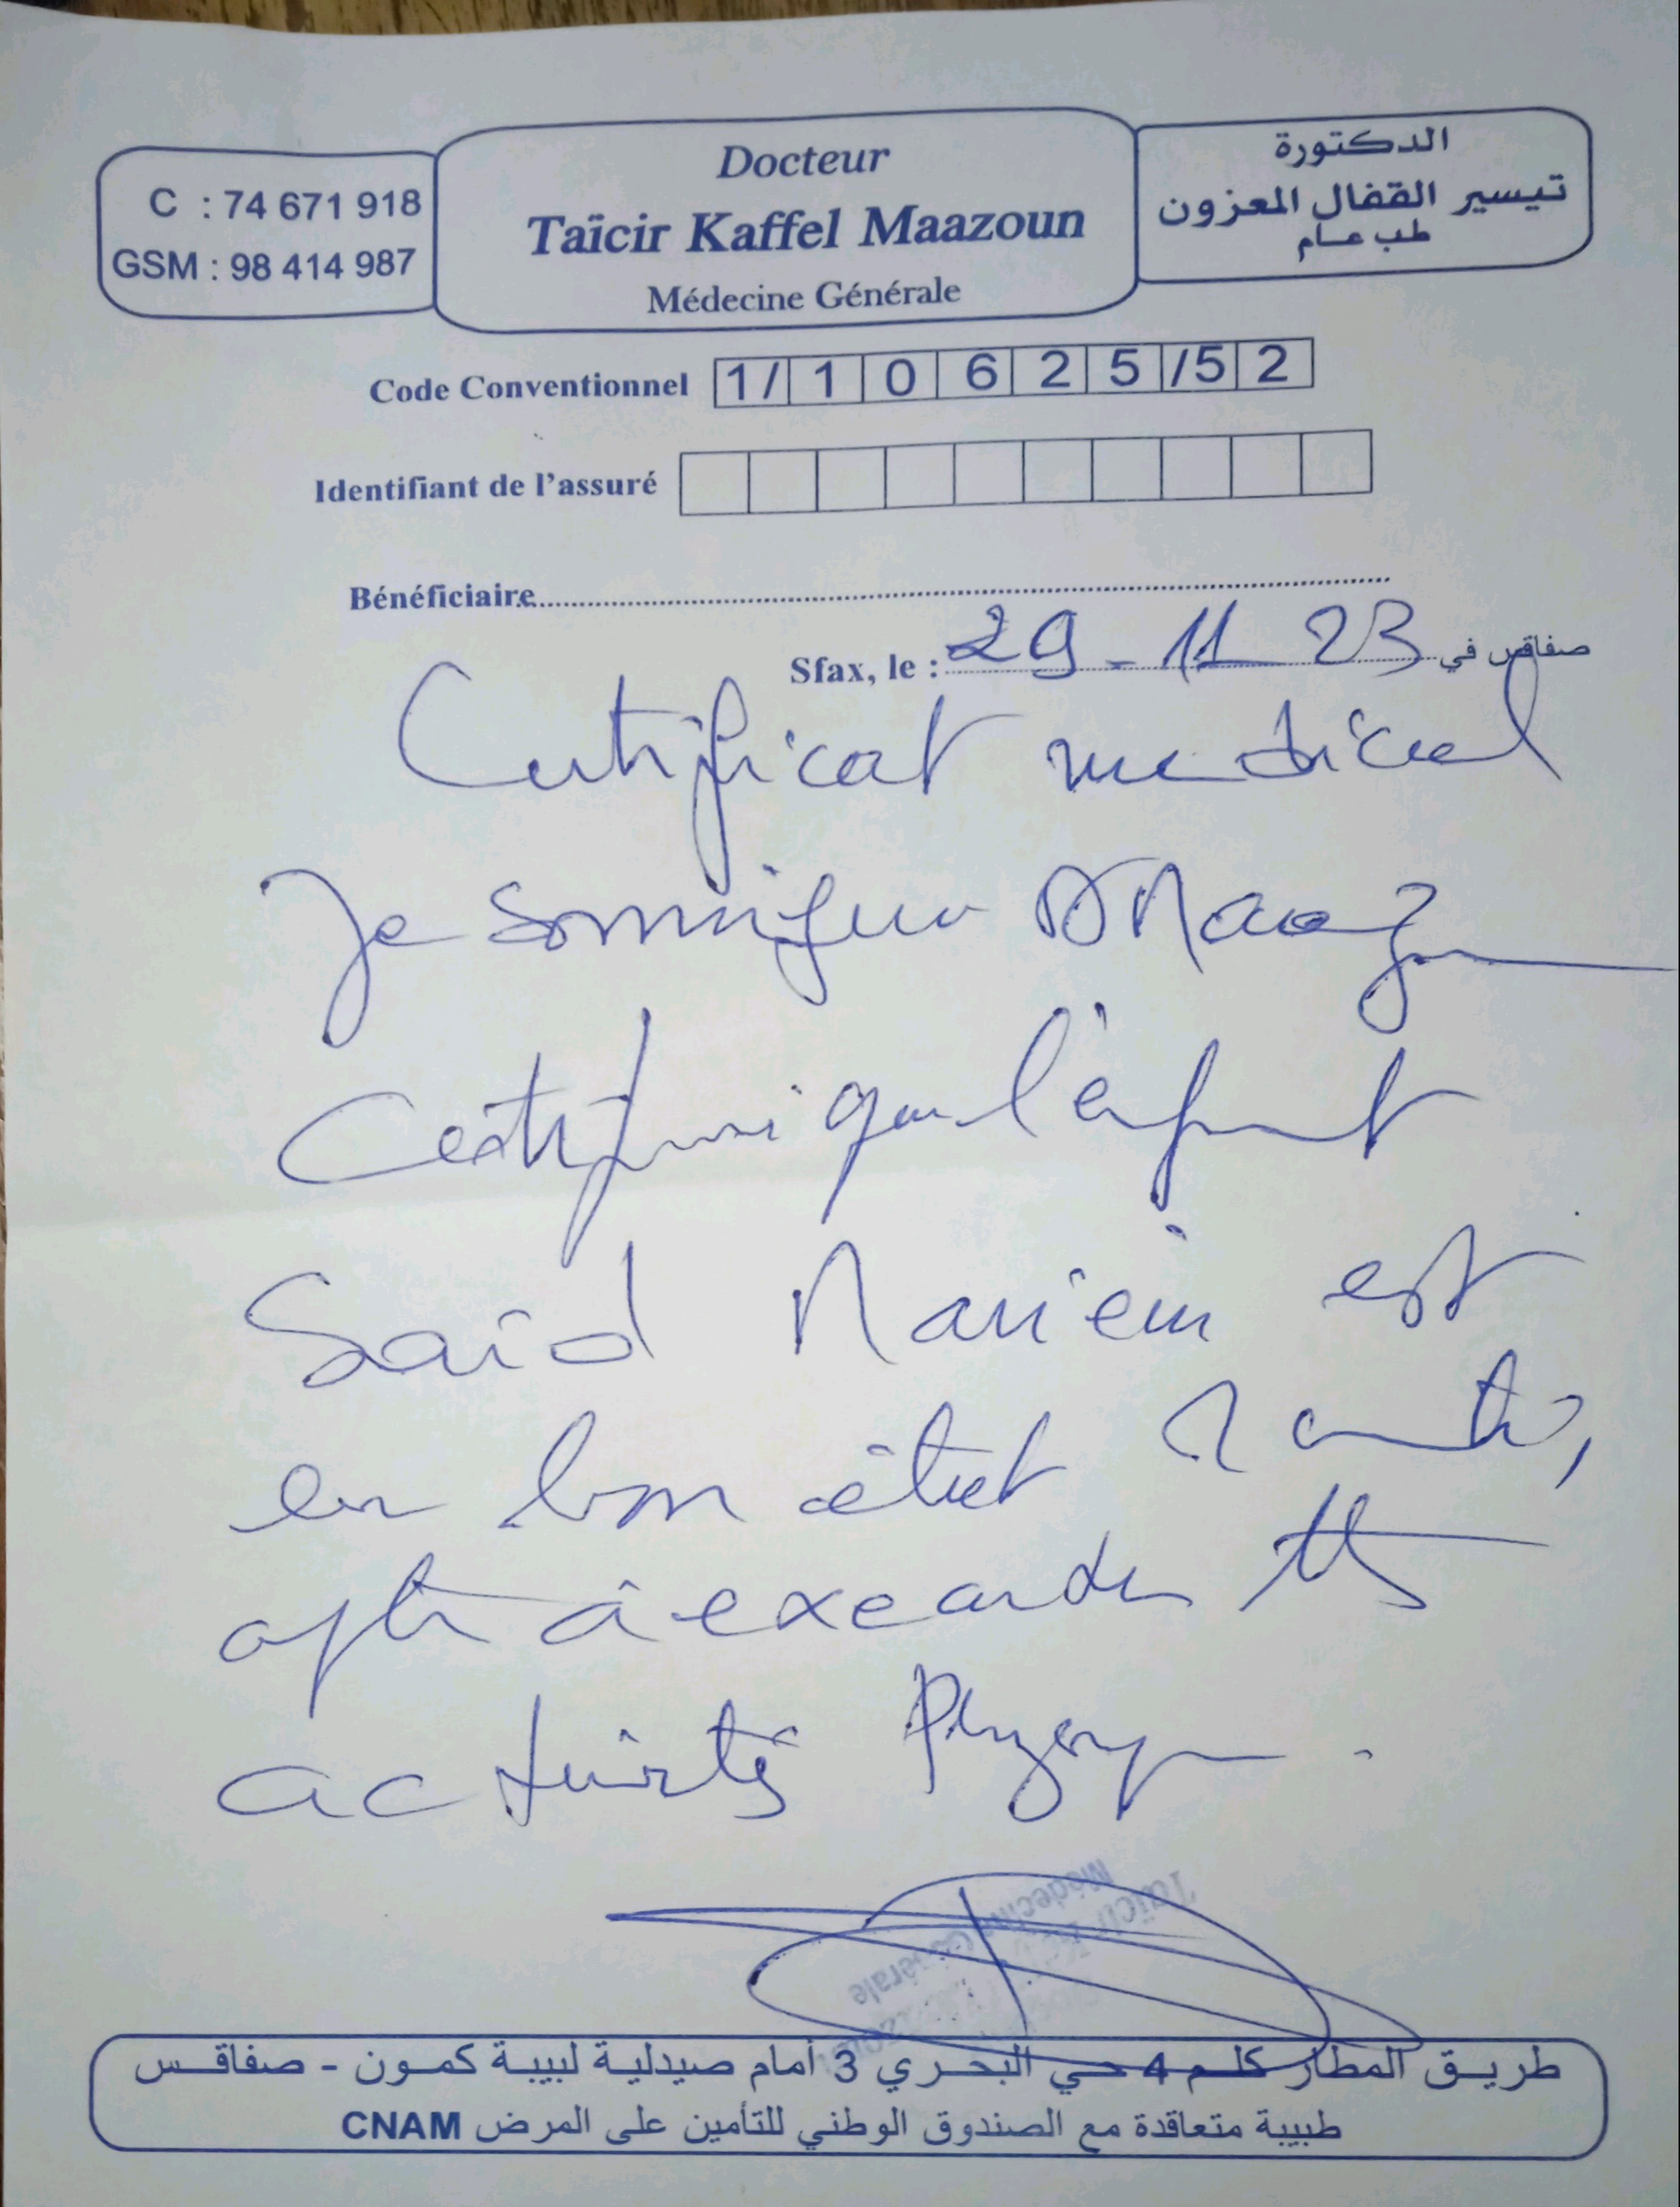 C : 74 671 918
GSM : 98 414 987
Docteur
Taïcir Kaffel Maazoun
Médecine Générale
الدكتورة
تيسير القفال المعزون
طب عام
Code Conventionnel 1/ 1 0 6 2 5 /5 2
Identifiant de l'assuré
Bénéficiaire
Sfax, le : 29-11 23 صفاقس في
Certificat medical
Je soussigné Dr Maazoun
Certifie que l'enfant
Said Mariem est
en bon état santé,
apte à exercer ttes
activités Physiques.
Taïcir
Médecine Générale
طريق المطار كلم 4 حي البحري 3 أمام صيدلية لبيبة كمون - صفاقس
طبيبة متعاقدة مع الصندوق الوطني للتأمين على المرض CNAM